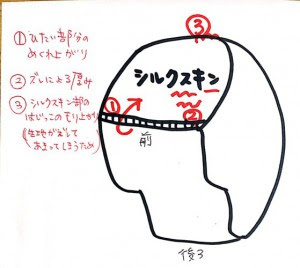 ① ひたい部分の
めくれ上がり
② ズレによる厚み
③ シルクスキン部の
はじっこのもり上がり
(生地が差して
あまってしまうため)
③
シルクスキン
①
②
前
後ろ